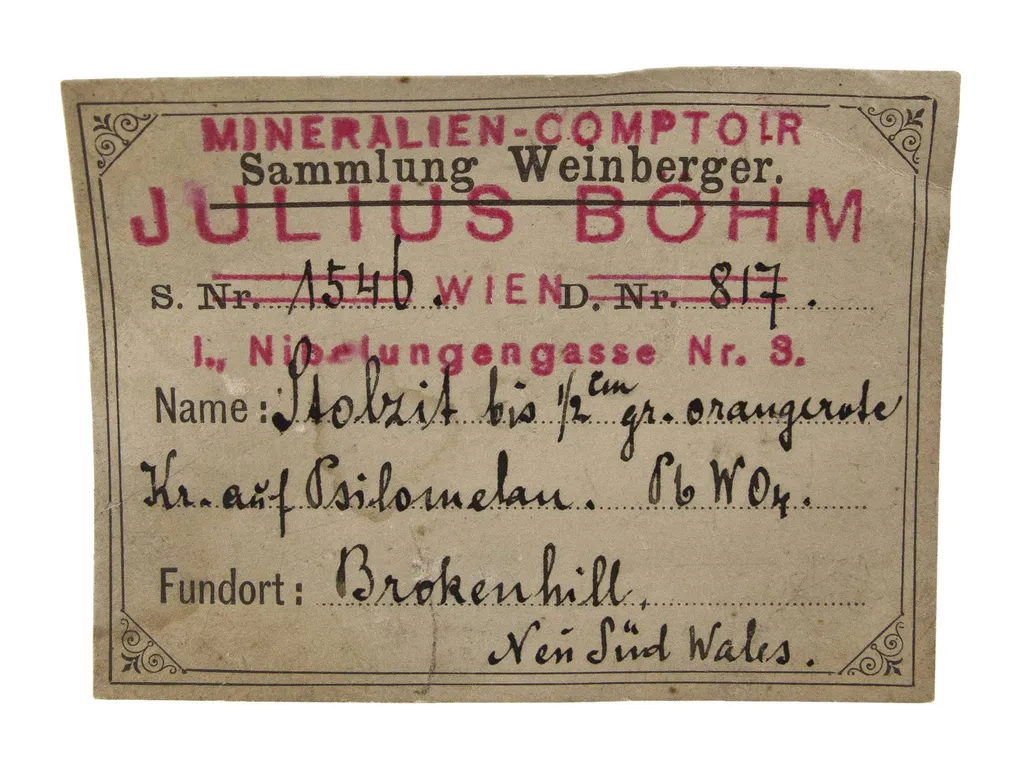 MINERALIEN-COMPTOIR
Sammlung Weinberger.
JULIUS BÖHM
S. Nr. 1546. WIEN D. Nr. 817.
I., Nibelungengasse Nr. 3.
Name: Stolzit bis 1/2 cm gr. orangerote
Kr. auf Psilomelan. Pb WO4.
Fundort: Brokenhill,
Neu Süd Wales.